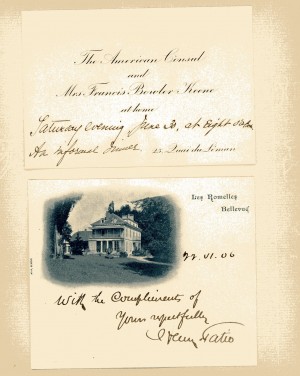 The American Consul
and
Mrs. Francis Bowler Keene
at home
Saturday evening June 30, at Eight o'clock
An informal Dinner 25 Quai du Léman
Les Romelles
Bellevue
22.VI.06
With the Compliments of
Yours respectfully
Henry Fatio